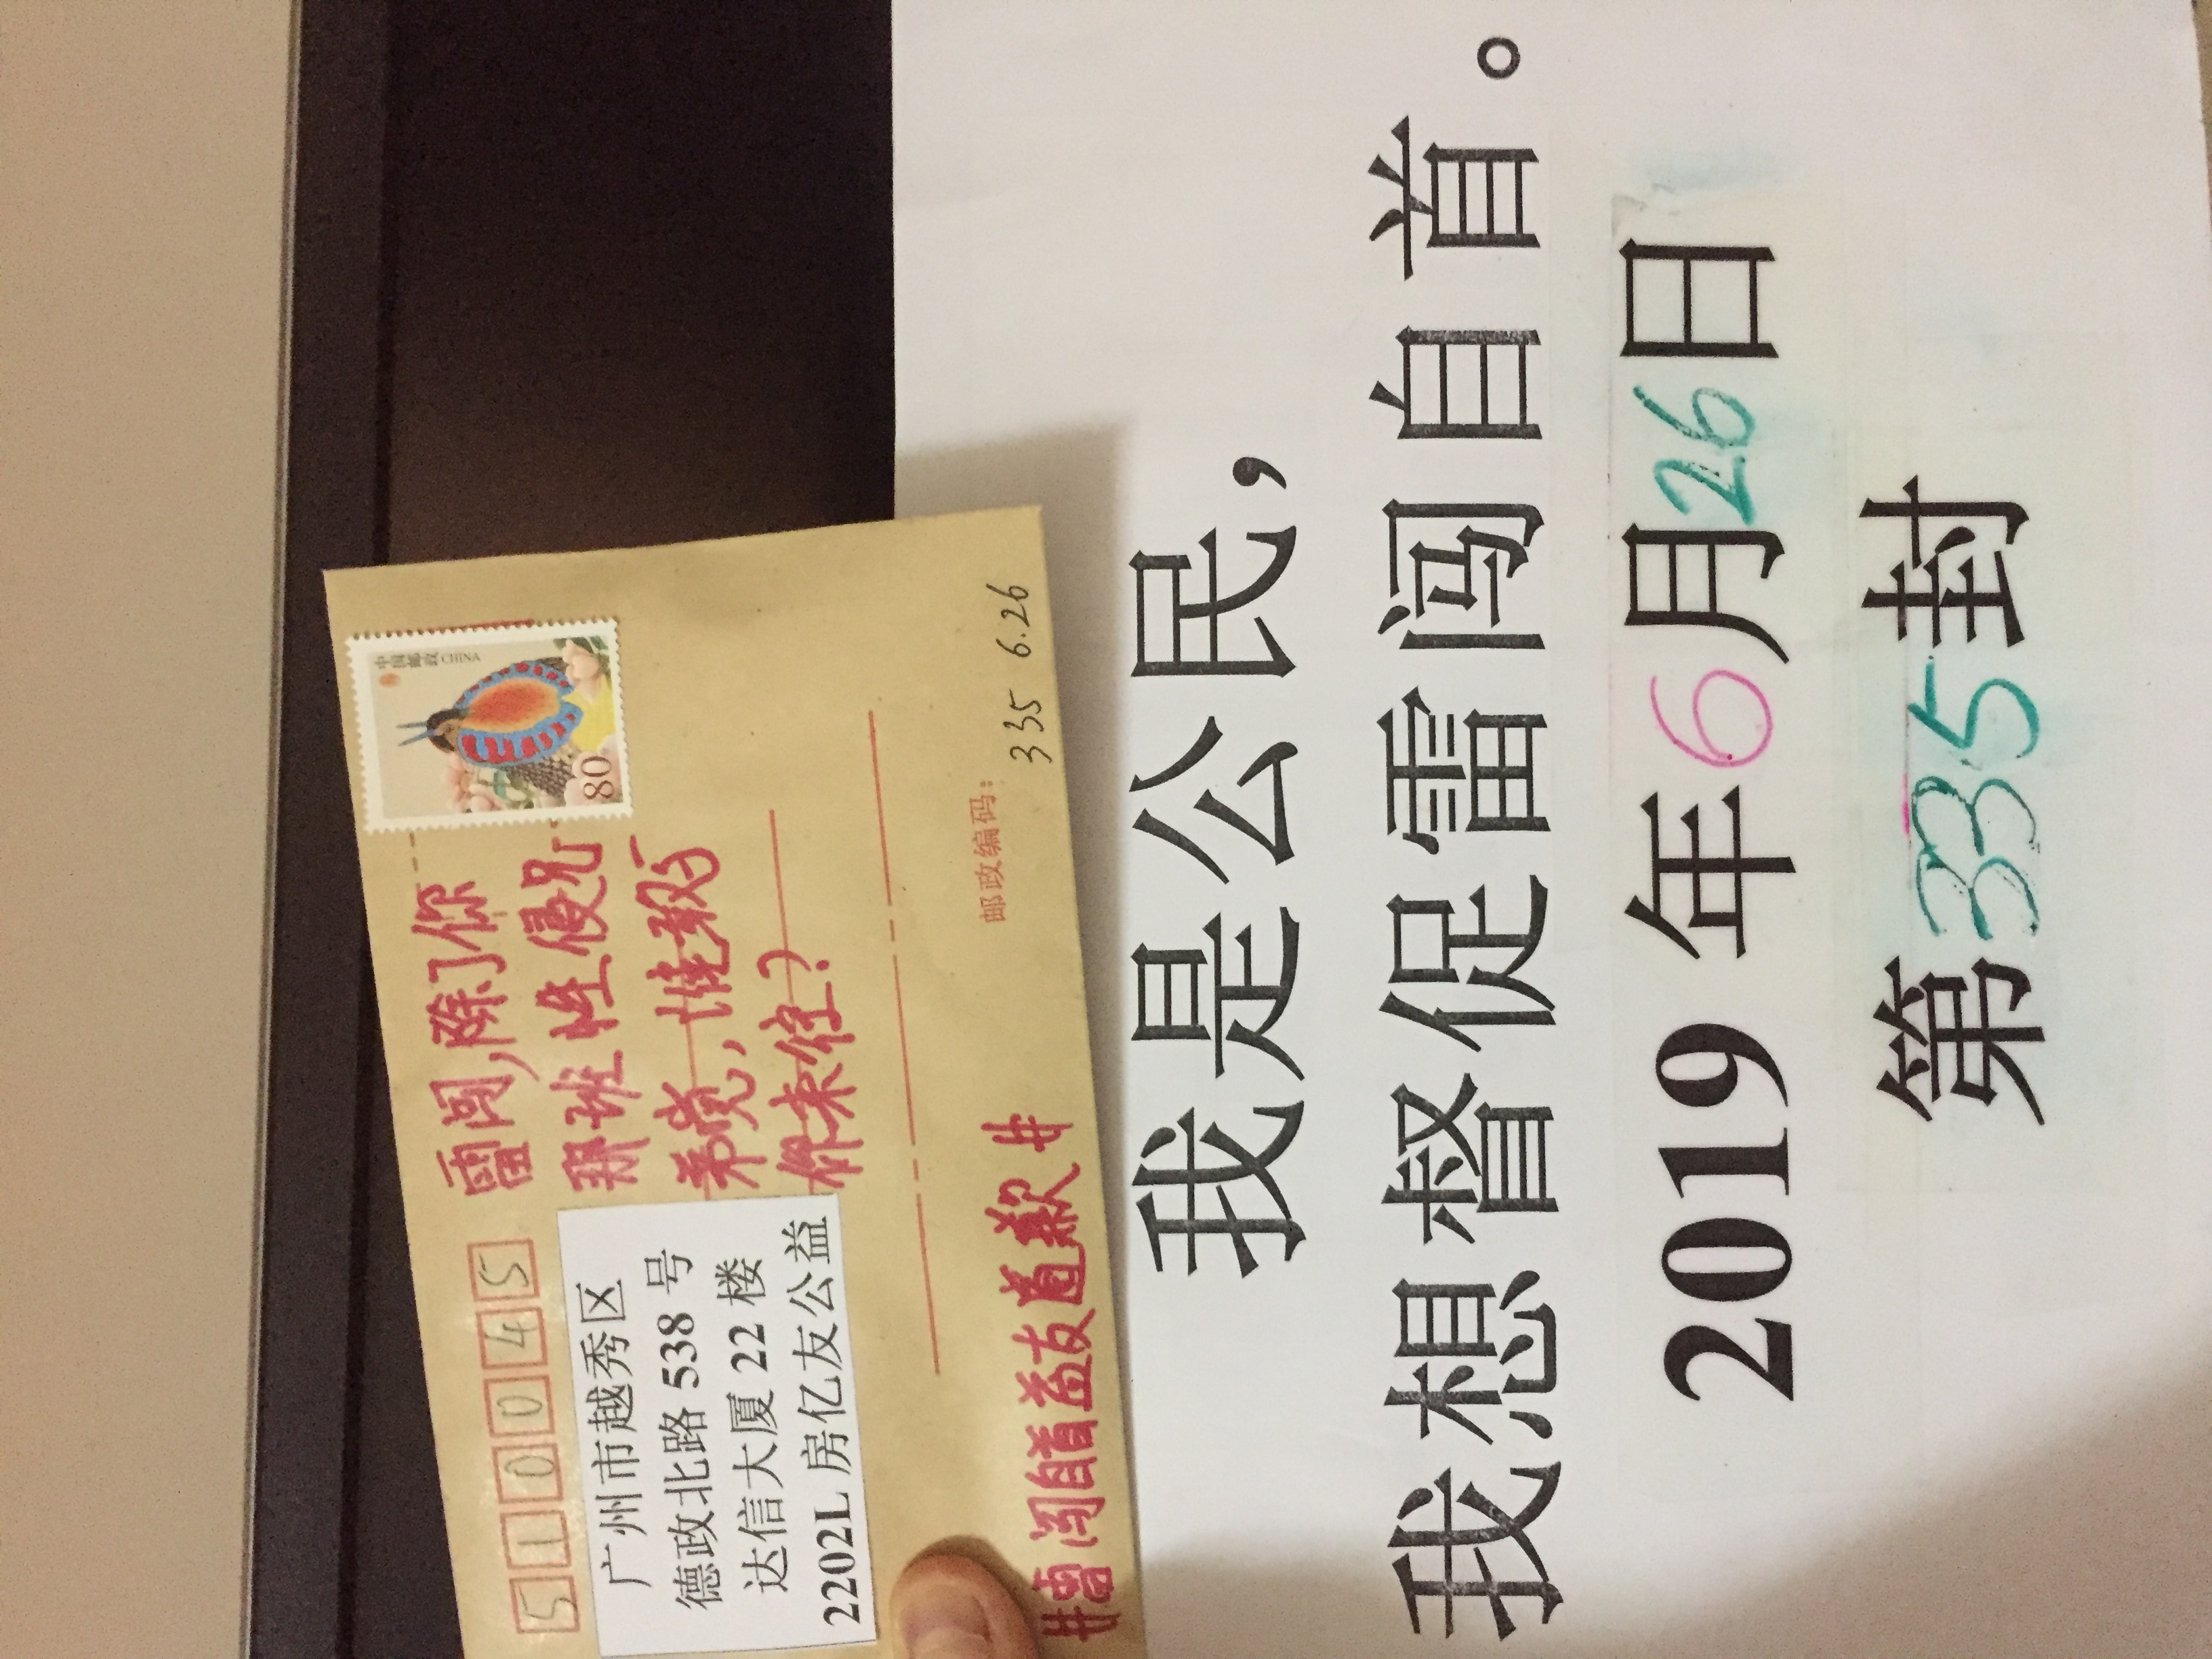 510045
广州市越秀区
德政北路 538 号
达信大厦 22 楼
2202L 房亿友公益
雷闯,除了你
那班性侵兄
弟党,谁敢与
你来往?
中国邮政 CHINA
80
#雷闯自首益友道歉#
邮政编码:
335 6.26
我是公民,
我想督促雷闯自首。
2019 年6月26日
第335封